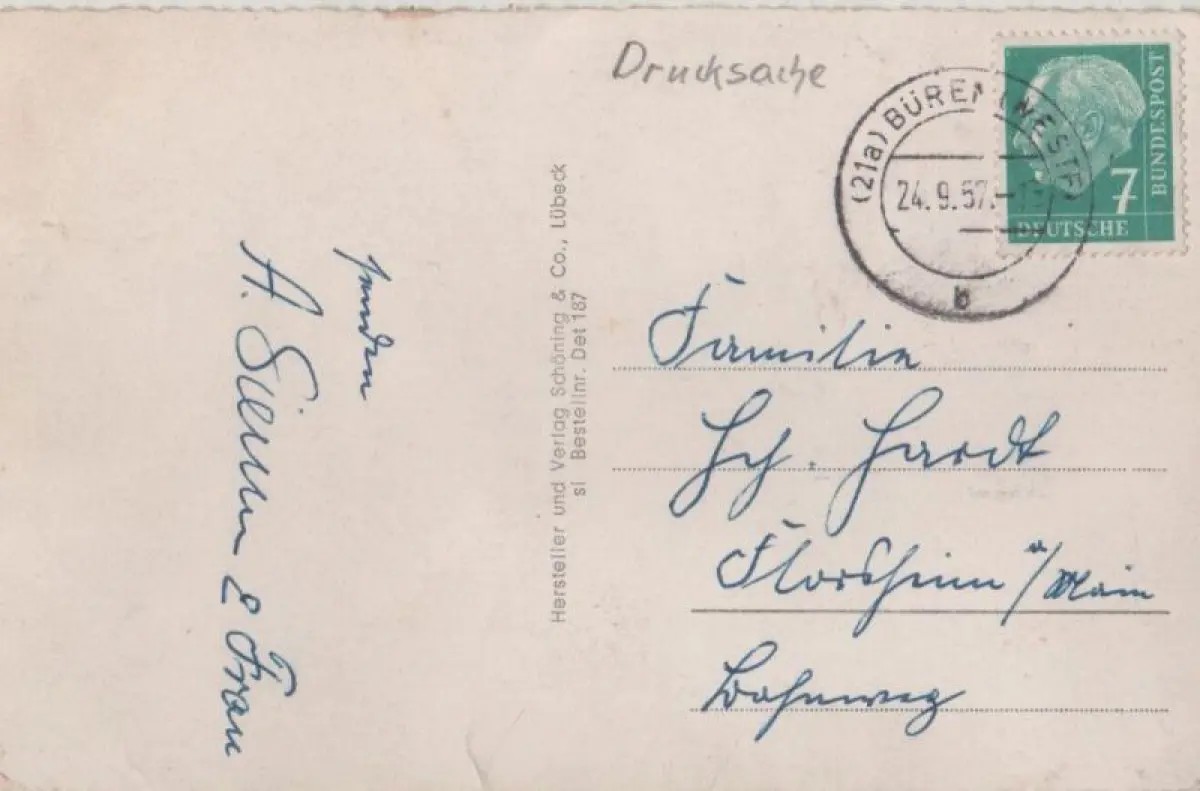 Drucksache
(21a) BÜREN (WESTF)
24.9.57.-13
b
7
BUNDESPOST
DEUTSCHE
senden
A. & Frau
Hersteller und Verlag Schöning & Co., Lübeck
sl Bestellnr. Det 187
Familie
Hch. Hardt
Flörsheim a/Main